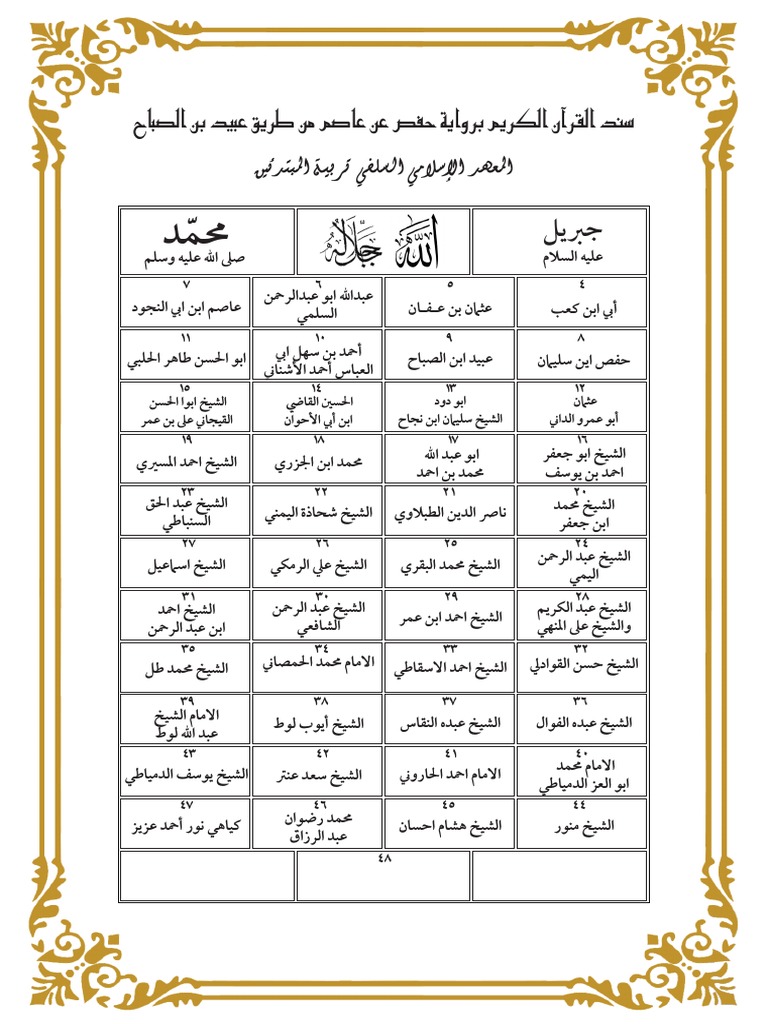 سند القرآن الكريم برواية حفص عن عاصم من طريق عبيد بن الصباح
المعهد الإسلامي السلفي تربية المبتدئين
جبريل
عليه السلام
الله جل جلاله
محمّد
صلى الله عليه وسلم
٤
أبي ابن كعب
٥
عثمان بن عـفـان
٦
عبدالله ابو عبدالرحمن
السلمي
٧
عاصم ابن ابي النجود
٨
حفص اين سليمان
٩
عبيد ابن الصباح
١٠
أحمد بن سهل ابي
العباس أحمد الأشناني
١١
ابو الحسن طاهر الحلبي
١٢
عثمان
أبو عمرو الداني
١٣
ابو دود
الشيخ سليمان ابن نجاح
١٤
الحسين القاضي
ابن أبي الأحوان
١٥
الشيخ ابوا الحسن
القيجاني على بن عمر
١٦
الشيخ ابو جعفر
احمد بن يوسف
١٧
ابو عبد الله
محمد بن احمد
١٨
محمد ابن الجزري
١٩
الشيخ احمد المسيري
٢٠
الشيخ محمد
ابن جعفر
٢١
ناصر الدين الطبلاوي
٢٢
الشيخ شحاذة اليمني
٢٣
الشيخ عبد الحق
السنباطي
٢٤
الشيخ عبد الرحمن
اليمي
٢٥
الشيخ محمد البقري
٢٦
الشيخ علي الرمكي
٢٧
الشيخ اسماعيل
٢٨
الشيخ عبد الكريم
والشيخ على المنهي
٢٩
الشيخ احمد ابن عمر
٣٠
الشيخ عبد الرحمن
الشافعي
٣١
الشيخ احمد
ابن عبد الرحمن
٣٢
الشيخ حسن القوادلي
٣٣
الشيخ احمد الاسقاطي
٣٤
الامام محمد الحمصاني
٣٥
الشيخ محمد طل
٣٦
الشيخ عبده الفوال
٣٧
الشيخ عبده النقاس
٣٨
الشيخ أيوب لوط
٣٩
الامام الشيخ
عبد الله لوط
٤٠
الامام محمد
ابو العز الدمياطي
٤١
الامام احمد الحاروني
٤٢
الشيخ سعد عنتر
٤٣
الشيخ يوسف الدمياطي
٤٤
الشيخ منور
٤٥
الشيخ هشام احسان
٤٦
محمد رضوان
عبد الرزاق
٤٧
كياهي نور أحمد عزيز
٤٨